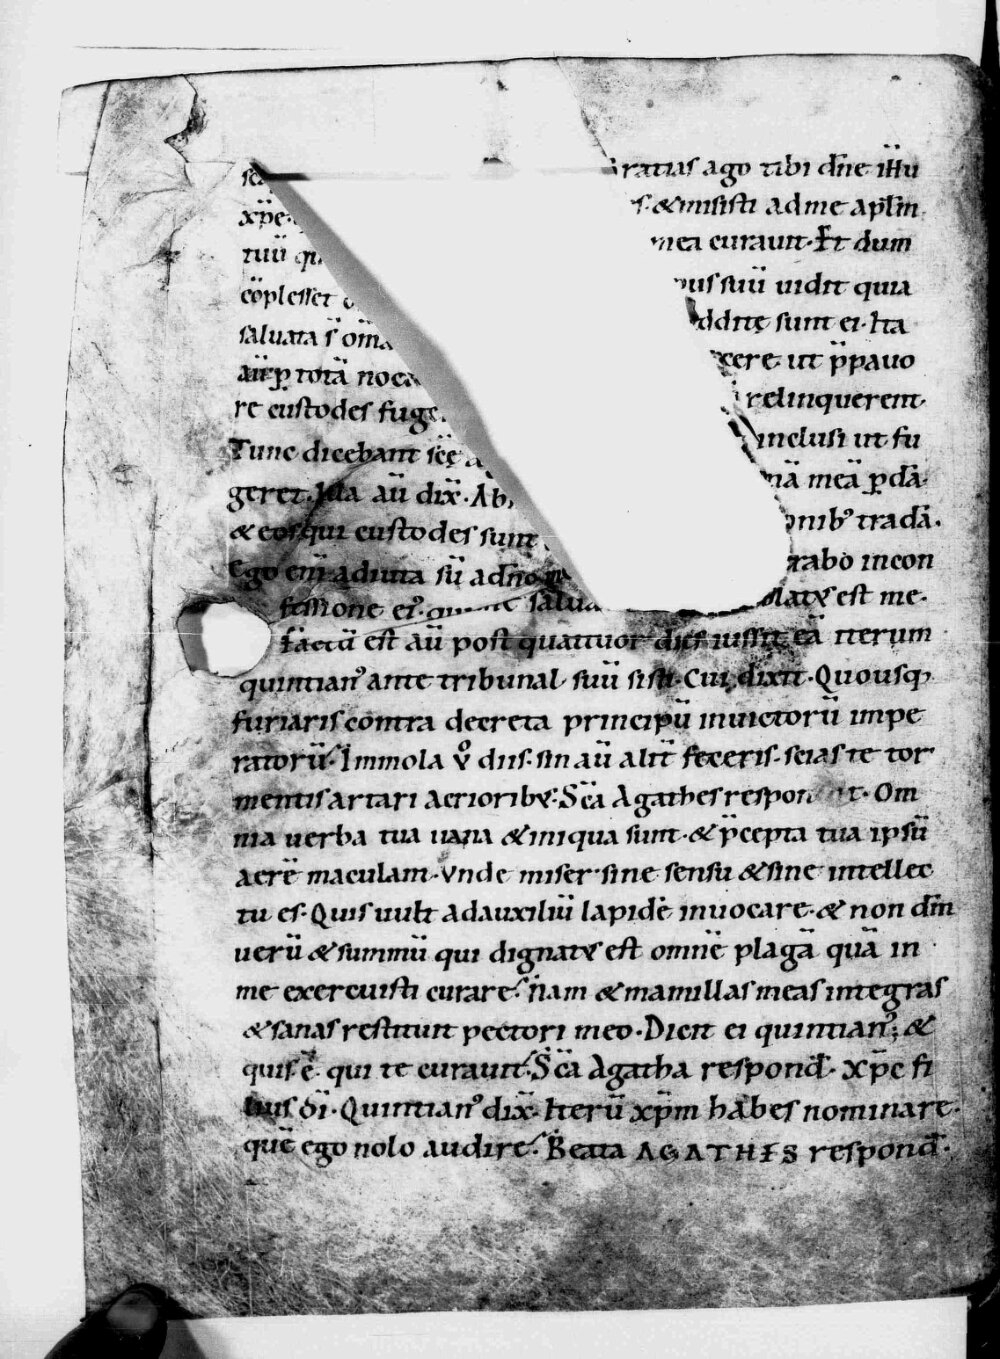 ratias ago tibi dn̄e ih̄u
xp̄e · & misisti ad me apl̄m
tuū mea curauit · Et dum
cōplesset uidit quia
saluata s̄ om̄a sunt ei · Ita
aū p̱ totā ut p̄pauo
re custodes relinquerent ·
Tunc dicebant sc̄ę inclusi ut fu
geret · Illa aū dix̄ · meā p̱dā ·
& eos qui custodes sunt tradā ·
Ego eni adiuta sū ad dn̄o in con
fessione ei᾽ · est me ·
Factū est aū post quattuor dies iussit eā iterum
quintian᾽ ante tribunal suū sisti · Cui dixit · Quousq;
furiaris contra decreta principū inuictorū impe
ratorū · Immola v̊ diis · sin aū alit̄ feceris · scias te tor
mentis artari acrioribꝰ · Sc̄a Agathes respon t · Om
nia uerba tua uana & iniqua sunt · & p̄cepta tua ipsū
aerē maculam · Vnde miser sine sensu & sine intellec
tu es · Quis uult ad auxiliū lapidē inuocare · & non dm̄
uerū & summū qui dignatꝰ est omnē plagā quā in
me exercuisti curare · nam & mamillas meas integras
& sanas restituit pectori meo · Dicit ei quintian᾽; &
quis ē qui te curauit · Sc̄a Agatha respond̄ · Xp̄c fi
lius dī · Quintian᾽ dix̄ · Iterū xp̄m habes nominare ·
quē ego nolo audire · Beata AGATHES respond̄ ·